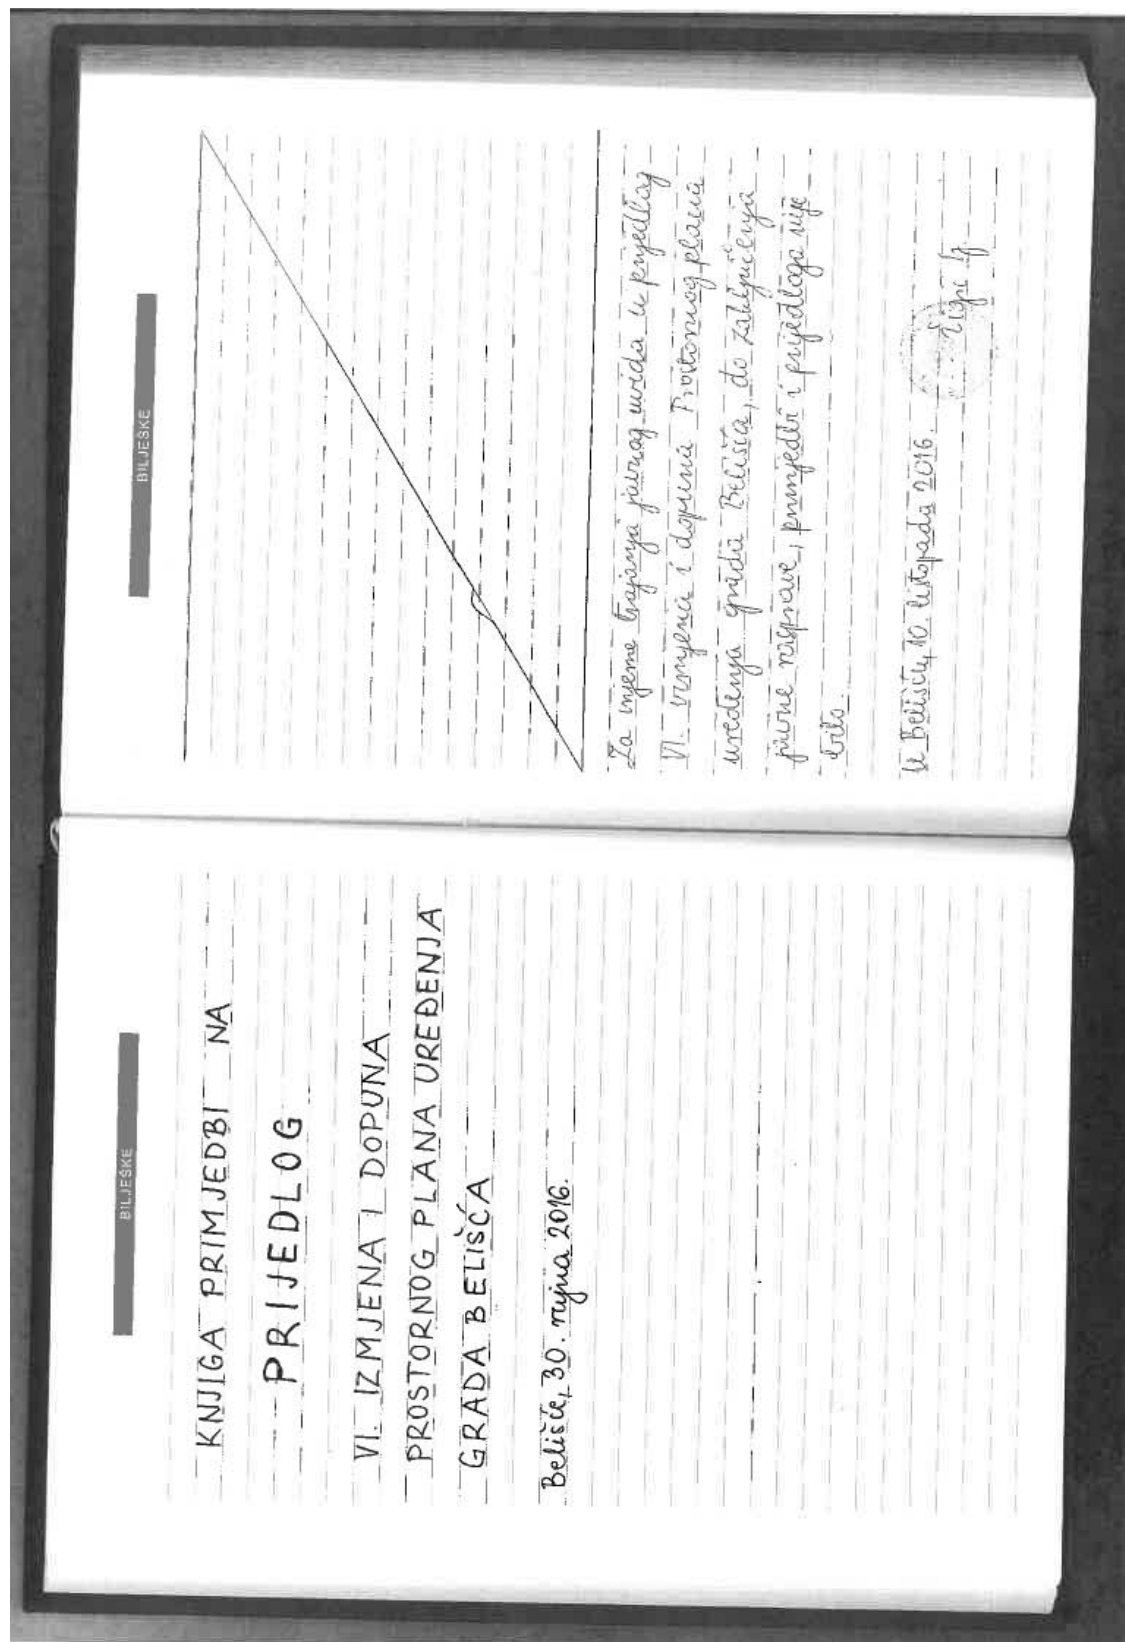 BILJEŠKE
KNJIGA PRIMJEDBI NA
PRIJEDLOG
VI. IZMJENA I DOPUNA
PROSTORNOG PLANA UREĐENJA
GRADA BELIŠĆA
Belišće, 30. rujna 2016.
BILJEŠKE
Za vrijeme trajanja javnog uvida u prijedlog
VI. izmjena i dopuna Prostornog plana
uređenja grada Belišća, do zaključenja
javne rasprave, primjedbi i prijedloga nije
bilo.
U Belišću, 10. listopada 2016.